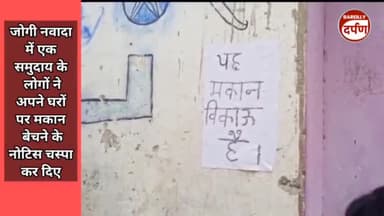 जोगी नवादा
में एक
समुदाय के
लोगों ने
अपने घरों
पर मकान
बेचने के
नोटिस चस्पा
कर दिए
BAREILLY
दर्पण
यह
मकान
विकाऊ
है।